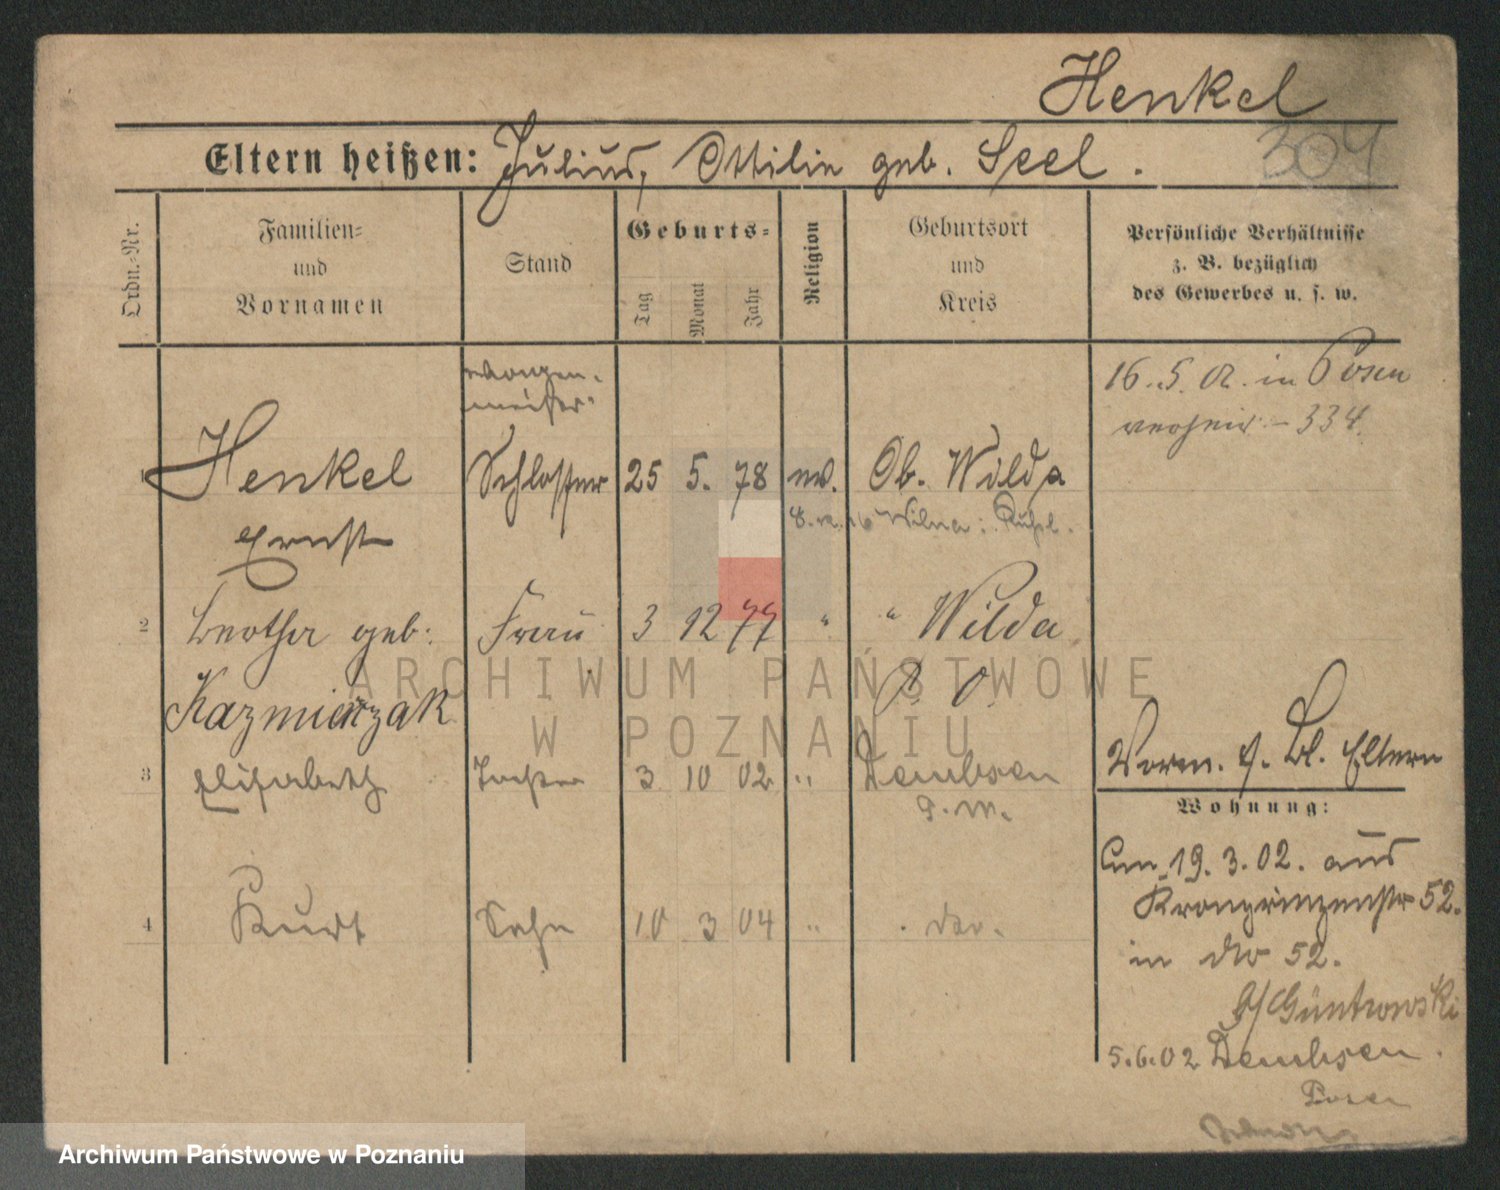 Henkel
304
Eltern heißen: Julius, Ottilie geb. Seel.
Ordn.-Nr.
Familien- und Vornamen
Stand
Geburts-
Tag
Monat
Jahr
Religion
Geburtsort und Kreis
Persönliche Verhältnisse
z. B. bezüglich
des Gewerbes u. s. w.
16. 5. 01. in Posen
verheir. - 334.
meister
1 Henkel Schlosser 25 5. 78 ev. Ob. Wilda
Ernst
2 Bertha geb: Frau 3 12 77 " " Wilda
Kazmierzak P. O.
3 Elisabeth Tochter 3 10 02 " Dembsen
P. W.
4 Kurt Sohn 10 3 04 " do.
Vorm. s. Bl. Eltern
Wohnung:
Am 19. 3. 02. aus
Kronprinzenstr 52.
in do 52.
b/ Güntrowski
5.6.02 Dembsen.
Posen
ARCHIWUM PAŃSTWOWE
W POZNANIU
Archiwum Państwowe w Poznaniu